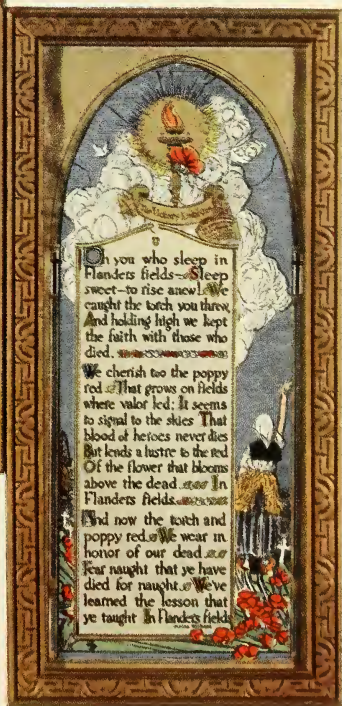 Oh you who sleep in
Flanders fields – Sleep
sweet – to rise anew! We
caught the torch you threw
And holding high we kept
the faith with those who
died.
We cherish too the poppy
red That grows on fields
where valor led: It seems
to signal to the skies That
blood of heroes never dies
But lends a lustre to the red
Of the flower that blooms
above the dead In
Flanders fields.
And now the torch and
poppy red We wear in
honor of our dead
Fear naught that ye have
died for naught. We've
learned the lesson that
ye taught In Flanders fields